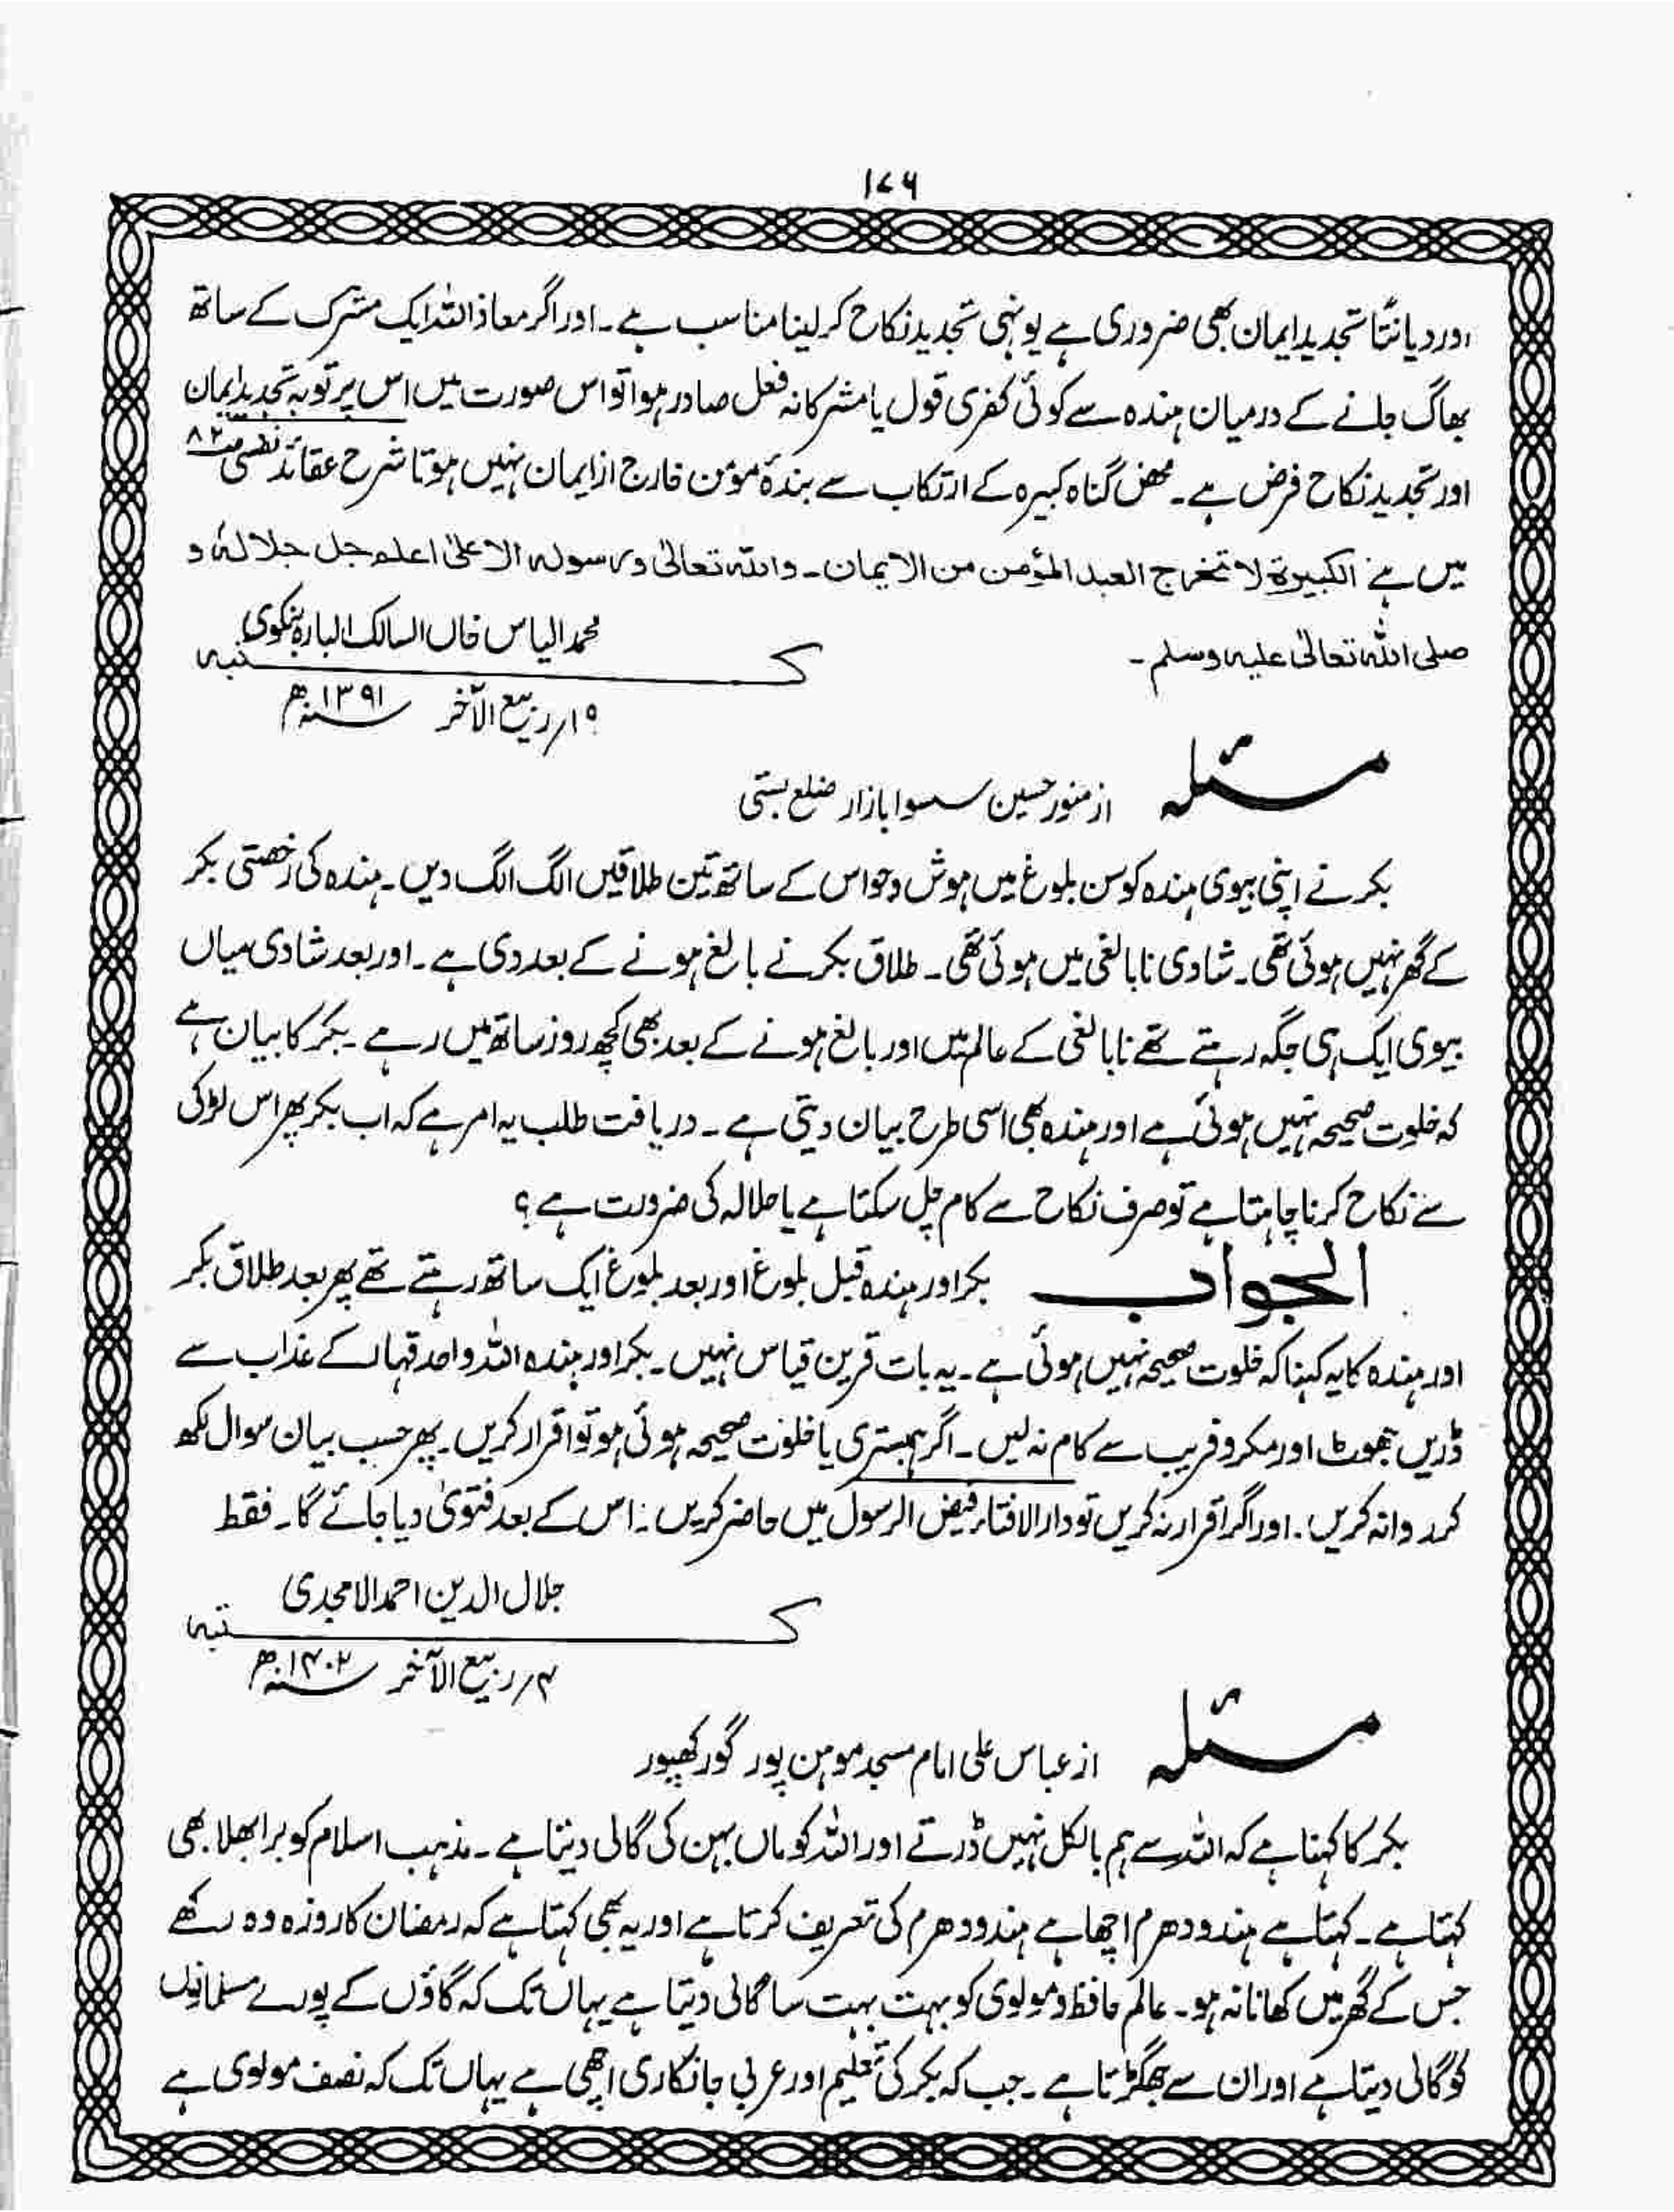 ۱۷۶
اور دیانتًا تجدید ایمان بھی ضروری ہے یونہی تجدید نکاح کر لینا مناسب ہے۔ اور اگر معاذ اللہ ایک مشرک کے ساتھ
بھاگ جانے کے درمیان ہندہ سے کوئی کفری قول یا مشرکانہ فعل صادر ہوا تو اس صورت میں اس پر توبہ تجدید ایمان
اور تجدید نکاح فرض ہے۔ محض گناہ کبیرہ کے ارتکاب سے بندۂ مومن خارج از ایمان نہیں ہوتا شرح عقائد نسفی ص۸۲
میں ہے الکبیرۃ لا تخرج العبد المؤمن من الایمان۔ واللہ تعالیٰ ورسولہ الاعلیٰ اعلم جل جلالہٗ و
صلی اللہ تعالیٰ علیہ وسلم۔
محمد الیاس خاں السالک البارہ بنکوی
کتبہ
۱۹؍ ربیع الآخر ۱۳۹۱ھ
مسئلہ از منور حسین سسوا بازار ضلع بستی
بکر نے اپنی بیوی ہندہ کو سن بلوغ میں ہوش و حواس کے ساتھ تین طلاقیں الگ الگ دیں۔ ہندہ کی رخصتی بکر
کے گھر نہیں ہوئی تھی۔ شادی نابالغی میں ہوئی تھی۔ طلاق بکر نے بالغ ہونے کے بعد دی ہے۔ اور بعد شادی میاں
بیوی ایک ہی جگہ رہتے تھے نابالغی کے عالم میں اور بالغ ہونے کے بعد بھی کچھ روز ساتھ میں رہے۔ بکر کا بیان ہے
کہ خلوت صحیحہ نہیں ہوئی ہے اور ہندہ بھی اسی طرح بیان دیتی ہے۔ دریافت طلب یہ امر ہے کہ اب بکر پھر اس لڑکی
سے نکاح کرنا چاہتا ہے تو صرف نکاح سے کام چل سکتا ہے یا حلالہ کی ضرورت ہے؟
الجواب بکر اور ہندہ قبل بلوغ اور بعد بلوغ ایک ساتھ رہتے تھے پھر بعد طلاق بکر
اور ہندہ کا یہ کہنا کہ خلوت صحیحہ نہیں ہوئی ہے۔ یہ بات قرین قیاس نہیں۔ بکر اور ہندہ اللہ واحد قہار کے عذاب سے
ڈریں جھوٹ اور مکر و فریب سے کام نہ لیں۔ اگر ہمبستری یا خلوت صحیحہ ہوئی ہو تو اقرار کریں۔ پھر حسب بیان سوال لکھ
کر روانہ کریں۔ اور اگر اقرار نہ کریں تو دارالافتاء فیض الرسول میں حاضر کریں۔ اس کے بعد فتویٰ دیا جائے گا۔ فقط
جلال الدین احمد الامجدی
کتبہ
۴؍ ربیع الآخر ۱۴۰۲ھ
مسئلہ از عباس علی امام مسجد موہن پور گورکھپور
بکر کا کہنا ہے کہ اللہ سے ہم بالکل نہیں ڈرتے اور اللہ کو ماں بہن کی گالی دیتا ہے۔ مذہب اسلام کو برا بھلا بھی
کہتا ہے۔ کہتا ہے ہندو دھرم اچھا ہے ہندو دھرم کی تعریف کرتا ہے اور یہ بھی کہتا ہے کہ رمضان کا روزہ وہ رکھے
جس کے گھر میں کھانا نہ ہو۔ عالم حافظ و مولوی کو بہت بہت سا گالی دیتا ہے یہاں تک کہ گاؤں کے پورے مسلمانوں
کو گالی دیتا ہے اور ان سے جھگڑتا ہے۔ جب کہ بکر کی تعلیم اور عربی جانکاری اچھی ہے یہاں تک کہ نصف مولوی ہے